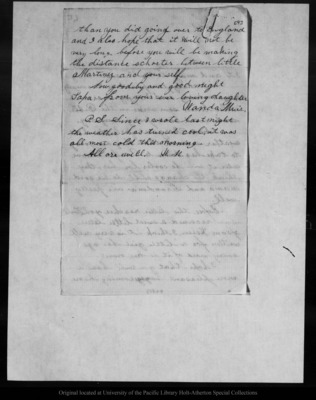 than you did going over to England
and I also hope that it will not be
very long before you will be making
the distance shorter between little
Martinez and your self.
Now goodby and good night
Papa. from your ever loving daughter
Wanda Muir.
P.S. Since I wrote last night
the weather has turned cool, it was
all most cold this morning.
All are well. W.M.
Original located at University of the Pacific Library Holt-Atherton Special Collections